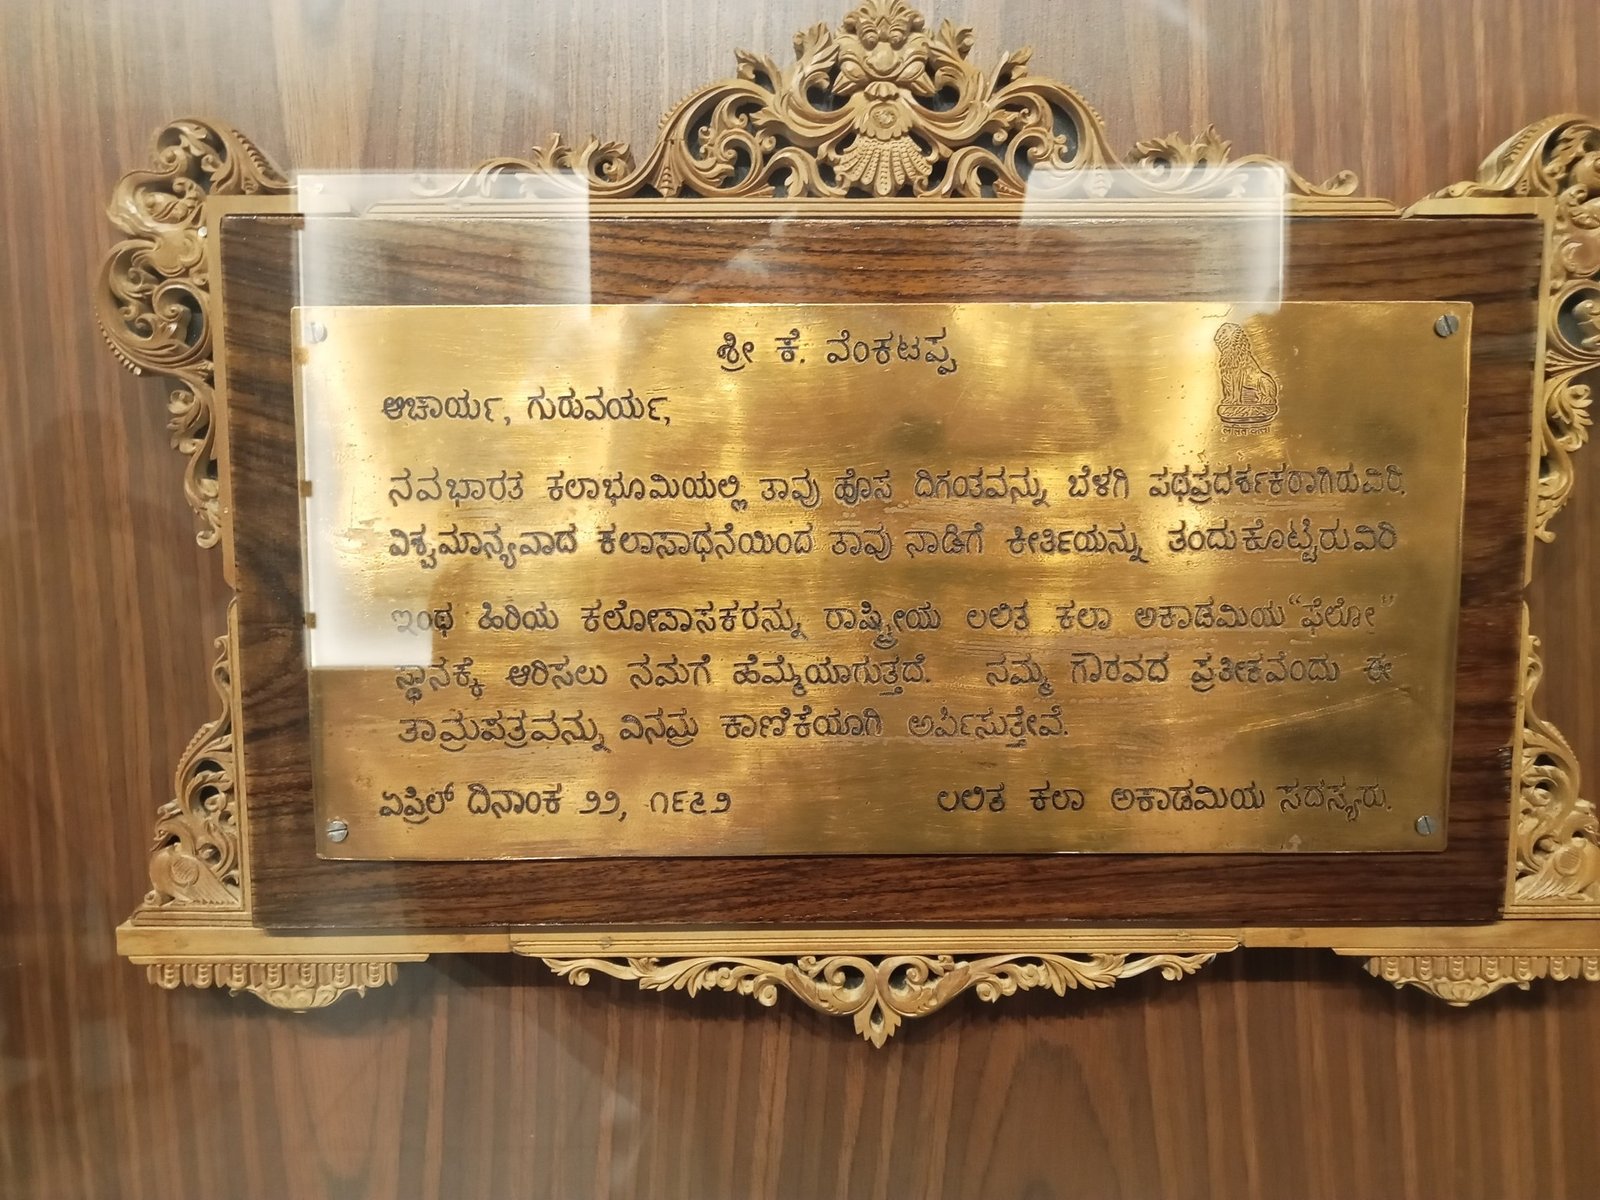 ಶ್ರೀ ಕೆ. ವೆಂಕಟಪ್ಪ
ಲಲಿತ ಕಲಾ
ಆಚಾರ್ಯ, ಗುರುವರ್ಯ,
ನವಭಾರತ ಕಲಾಭೂಮಿಯಲ್ಲಿ ತಾವು ಹೊಸ ದಿಗಂತವನ್ನು ಬೆಳಗಿ ಪಥಪ್ರದರ್ಶಕರಾಗಿರುವಿರಿ.
ವಿಶ್ವಮಾನ್ಯವಾದ ಕಲಾಸಾಧನೆಯಿಂದ ತಾವು ನಾಡಿಗೆ ಕೀರ್ತಿಯನ್ನು ತಂದುಕೊಟ್ಟಿರುವಿರಿ
ಇಂಥ ಹಿರಿಯ ಕಲೋಪಾಸಕರನ್ನು ರಾಷ್ಟ್ರೀಯ ಲಲಿತ ಕಲಾ ಅಕಾಡಮಿಯ “ಫೆಲೋ”
ಸ್ಥಾನಕ್ಕೆ ಆರಿಸಲು ನಮಗೆ ಹೆಮ್ಮೆಯಾಗುತ್ತದೆ. ನಮ್ಮ ಗೌರವದ ಪ್ರತೀಕವೆಂದು ಈ
ತಾಮ್ರಪತ್ರವನ್ನು ವಿನಮ್ರ ಕಾಣಿಕೆಯಾಗಿ ಅರ್ಪಿಸುತ್ತೇವೆ.
ಏಪ್ರಿಲ್ ದಿನಾಂಕ ೨೨, ೧೯೬೨ ಲಲಿತ ಕಲಾ ಅಕಾಡಮಿಯ ಸದಸ್ಯರು.